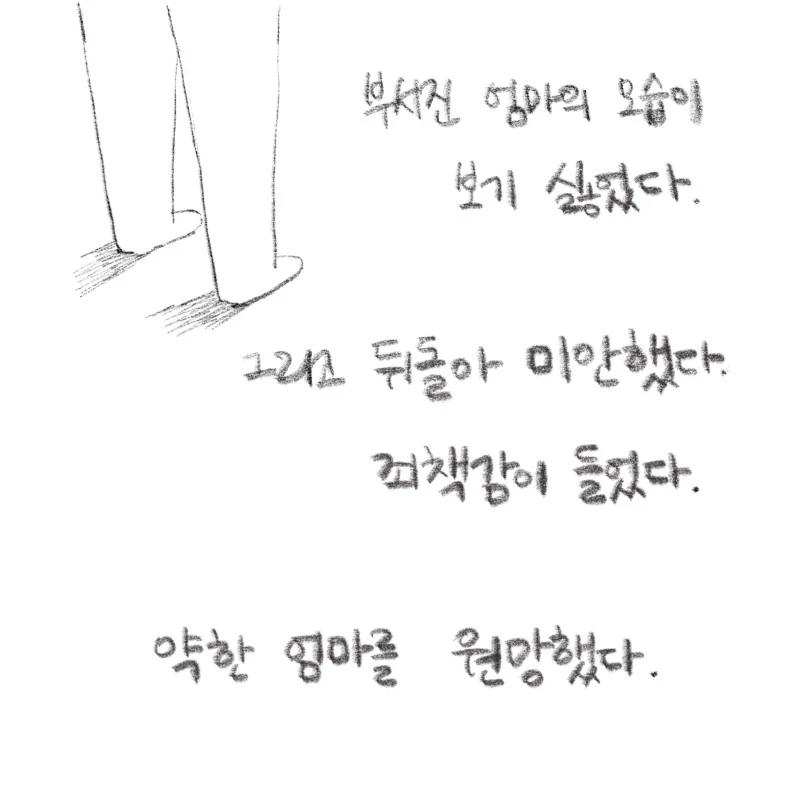 부서진 엄마의 모습이
보기 싫었다.
그리고 뒤돌아 미안했다.
죄책감이 들었다.
약한 엄마를 원망했다.